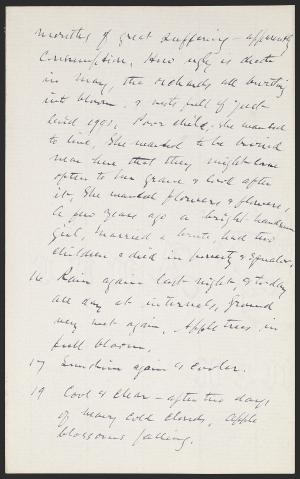 months of great suffering – apparently
Consumption. How ugly is death
in May, the orchards all bursting
into bloom, & nests full of just
laid eggs. Poor child, she wanted
to live. She wanted to be buried
near here that they might come
often to her grave & look after
it. She wanted flowers & flowers.
A few years ago a bright handsome
girl, married a brute, had two
children & died in poverty & squalor.
16 Rain again last night & to-day
all day at intervals, ground
very wet again. Apple trees in
full bloom.
17 Sunshine again & cooler.
19 Cool & clear – after two days
of heavy cold clouds. Apple
blossoms falling.